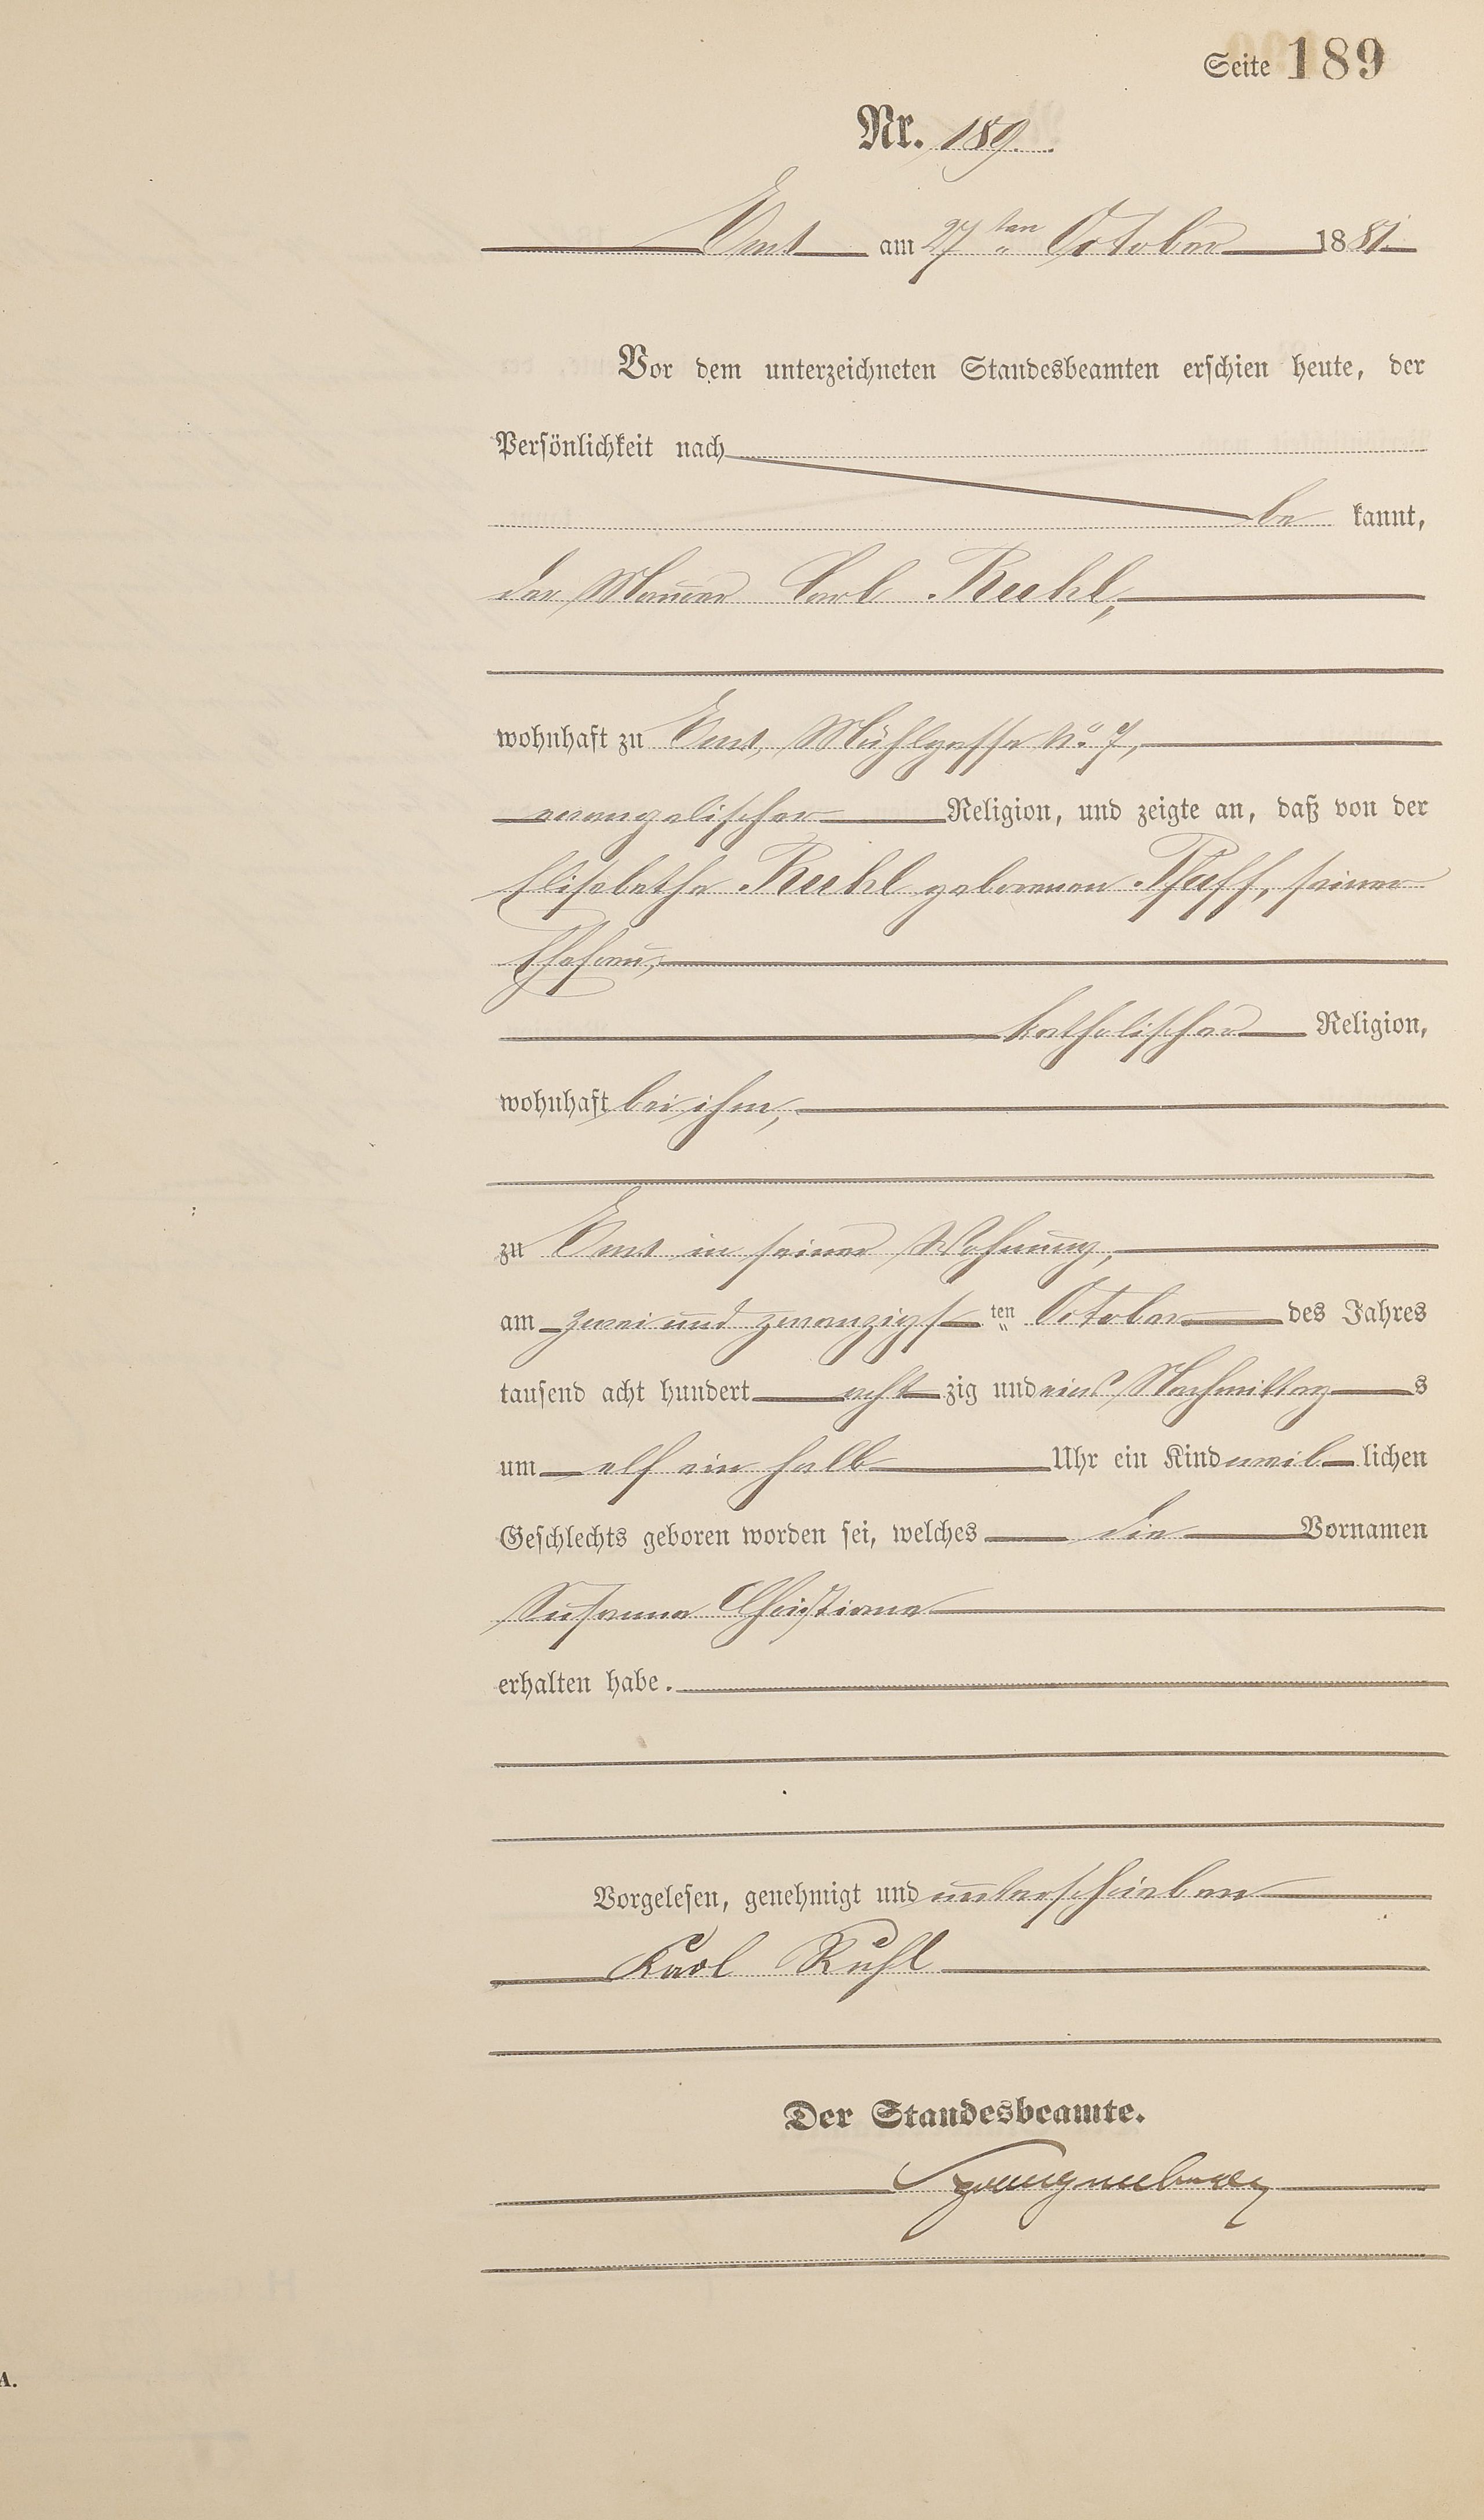 Seite 189
Nr. 189.
Ems am 27ten October 1881.
Vor dem unterzeichneten Standesbeamten erschien heute, der
Persönlichkeit nach
be kannt,
der Maurer Carl Ruhl,
wohnhaft zu Ems, Mühlgasse No. 7,
evangelischer Religion, und zeigte an, daß von der
Elisabetha Ruhl geborenen Pfaff, seiner
Ehefrau,
katholischer Religion,
wohnhaft bei ihm,
zu Ems in seiner Wohnung,
am zwei und zwanzigsten October des Jahres
tausend acht hundert acht zig und eins Nachmittags
um elf ein halb Uhr ein Kind weib lichen
Geschlechts geboren worden sei, welches die Vornamen
Susanna Christiana
erhalten habe.
Vorgelesen, genehmigt und unterschrieben
Karl Ruhl
Der Standesbeamte.
A.